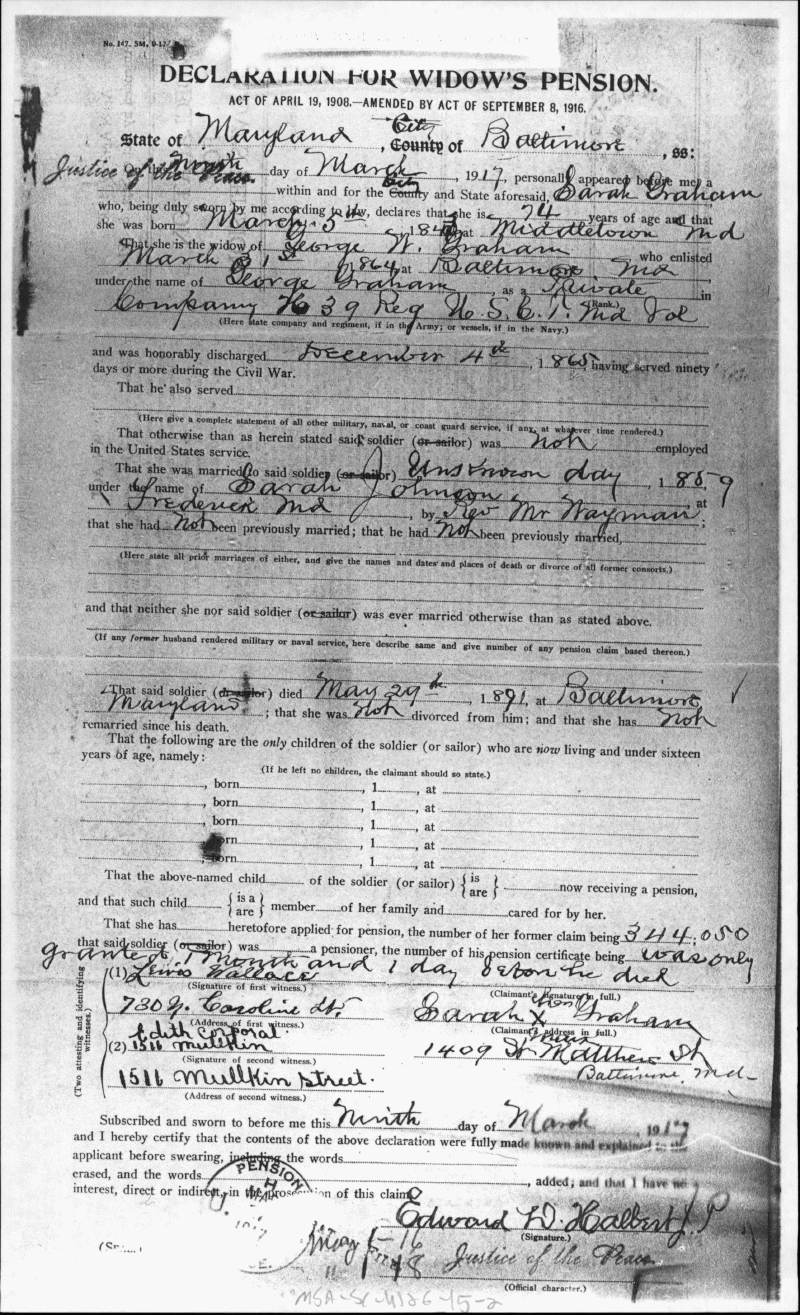 No. 147. 5M, 9-17
DECLARATION FOR WIDOW'S PENSION.
ACT OF APRIL 19, 1908.—AMENDED BY ACT OF SEPTEMBER 8, 1916.
State of Maryland, City County of Baltimore, ss:
day of March, 1917, personally appeared before me, a
Justice of the Peace within and for the City County and State aforesaid, Sarah Graham
who, being duly sworn by me according to law, declares that she is 74 years of age and that
she was born March 5th 184 at Middletown Md
That she is the widow of George W. Graham who enlisted
under the name of George Graham March 31st, 1864, at Baltimore, Md, as a Private in
(Rank.)
Company H 39 Reg U.S.C.T. Md Vol
(Here state company and regiment, if in the Army; or vessels, if in the Navy.)
and was honorably discharged December 4th, 1865, having served ninety
days or more during the Civil War.
That he also served
(Here give a complete statement of all other military, naval, or coast guard service, if any, at whatever time rendered.)
That otherwise than as herein stated said soldier (or sailor) was not employed
in the United States service.
That she was married to said soldier (or sailor) Unknown day, 1859
under the name of Sarah Johnson, at
Frederick Md, by Rev Mr Wayman;
that she had not been previously married; that he had not been previously married,
(Here state all prior marriages of either, and give the names and dates and places of death or divorce of all former consorts.)
and that neither she nor said soldier (or sailor) was ever married otherwise than as stated above.
(If any former husband rendered military or naval service, here describe same and give number of any pension claim based thereon.)
That said soldier (or sailor) died May 29th, 1891, at Baltimore
Maryland; that she was not divorced from him; and that she has not
remarried since his death.
That the following are the only children of the soldier (or sailor) who are now living and under sixteen
years of age, namely:
(If he left no children, the claimant should so state.)
, born , 1 , at
, born , 1 , at
, born , 1 , at
, born , 1 , at
, born , 1 , at
That the above-named child of the soldier (or sailor) { is are } now receiving a pension,
and that such child { is a are } member of her family and cared for by her.
That she has heretofore applied for pension, the number of her former claim being 344,050
that said soldier (or sailor) was a pensioner, the number of his pension certificate being was only
granted 1 month and 1 day before he died
(Two attesting and identifying witnesses.)
(1) Lewis Wallace
(Signature of first witness.)
730 N. Caroline St.
(Address of first witness.)
Edith Corporal
(2) 1516 Mullkin
(Signature of second witness.)
1516 Mullkin Street.
(Address of second witness.)
(Claimant's signature in full.)
Sarah X Graham
her mark
(Claimant's address in full.)
1409 St Matthew St
Baltimore, Md
Subscribed and sworn to before me this Ninth day of March, 1917
and I hereby certify that the contents of the above declaration were fully made known and explained to the
applicant before swearing, including the words
erased, and the words , added; and that I have no
interest, direct or indirect, in the prosecution of this claim.
PENSION
Edward D. Halbert J.P
(Signature.)
Justice of the Peace
(Official character.)
MSA-SC-4126-15-2